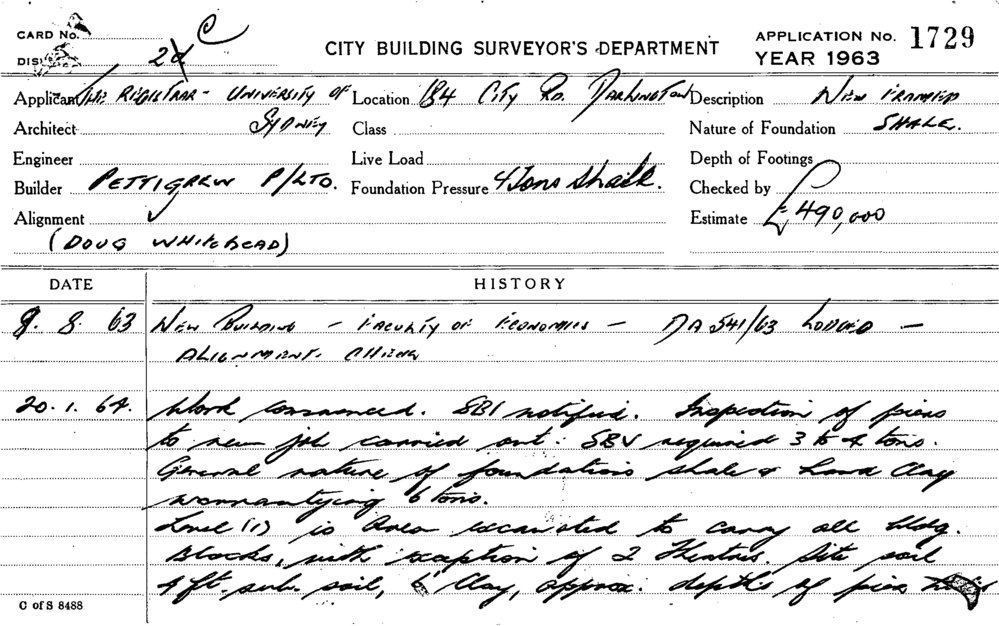 CARD No. C
CITY BUILDING SURVEYOR'S DEPARTMENT
APPLICATION No. 1729
DIS 2d
YEAR 1963
Applicant The REGISTRAR - UNIVERSITY OF Location 184 CITY RD. DARLINGTON Description NEW FRAMED
Architect SYDNEY Class Nature of Foundation SHALE.
Engineer Live Load Depth of Footings
Builder PETTIGREW P/LTD. Foundation Pressure 4 Tons Shale. Checked by
Alignment ✓ Estimate £490,000
(DOUG WHITEHEAD)
DATE HISTORY
9. 8. 63 NEW BUILDING - FACULTY OF ECONOMICS - DA 541/63 LODGED -
ALIGNMENT.
20. 1. 64. Work commenced. SBI notified. Inspection of piers
to new job carried out: SBV required 3 to 4 tons.
General nature of foundations shale & hard Clay
warrantying 6 tons.
Level (1) is Area excavated to carry all bldg.
Blocks, with exception of 2 Theatres. Site soil
4 ft. sub. soil, & Clay, approx. depths of piers
C of S 8488